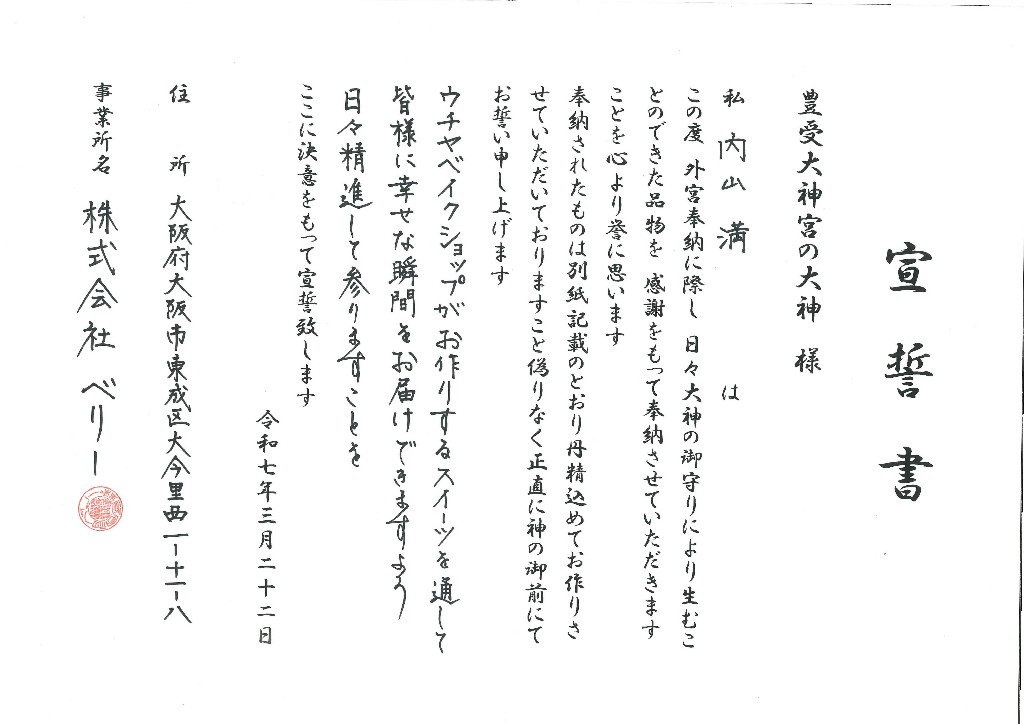 宣誓書
豊受大神宮の大神 様
私 内山 満 は
この度 外宮奉納に際し 日々大神の御守りにより生むこ
とのできた品物を 感謝をもって奉納させていただきます
ことを心より誉に思います
奉納されたものは別紙記載のとおり丹精込めてお作りさ
せていただいておりますこと偽りなく正直に神の御前にて
お誓い申し上げます
ウチヤベイクショップがお作りするスイーツを通して
皆様に幸せな瞬間をお届けできますよう
日々精進して参りますことを
ここに決意をもって宣誓致します
令和七年三月二十二日
住 所 大阪府大阪市東成区大今里西一-十一-八
事業所名 株式会社 ベリー